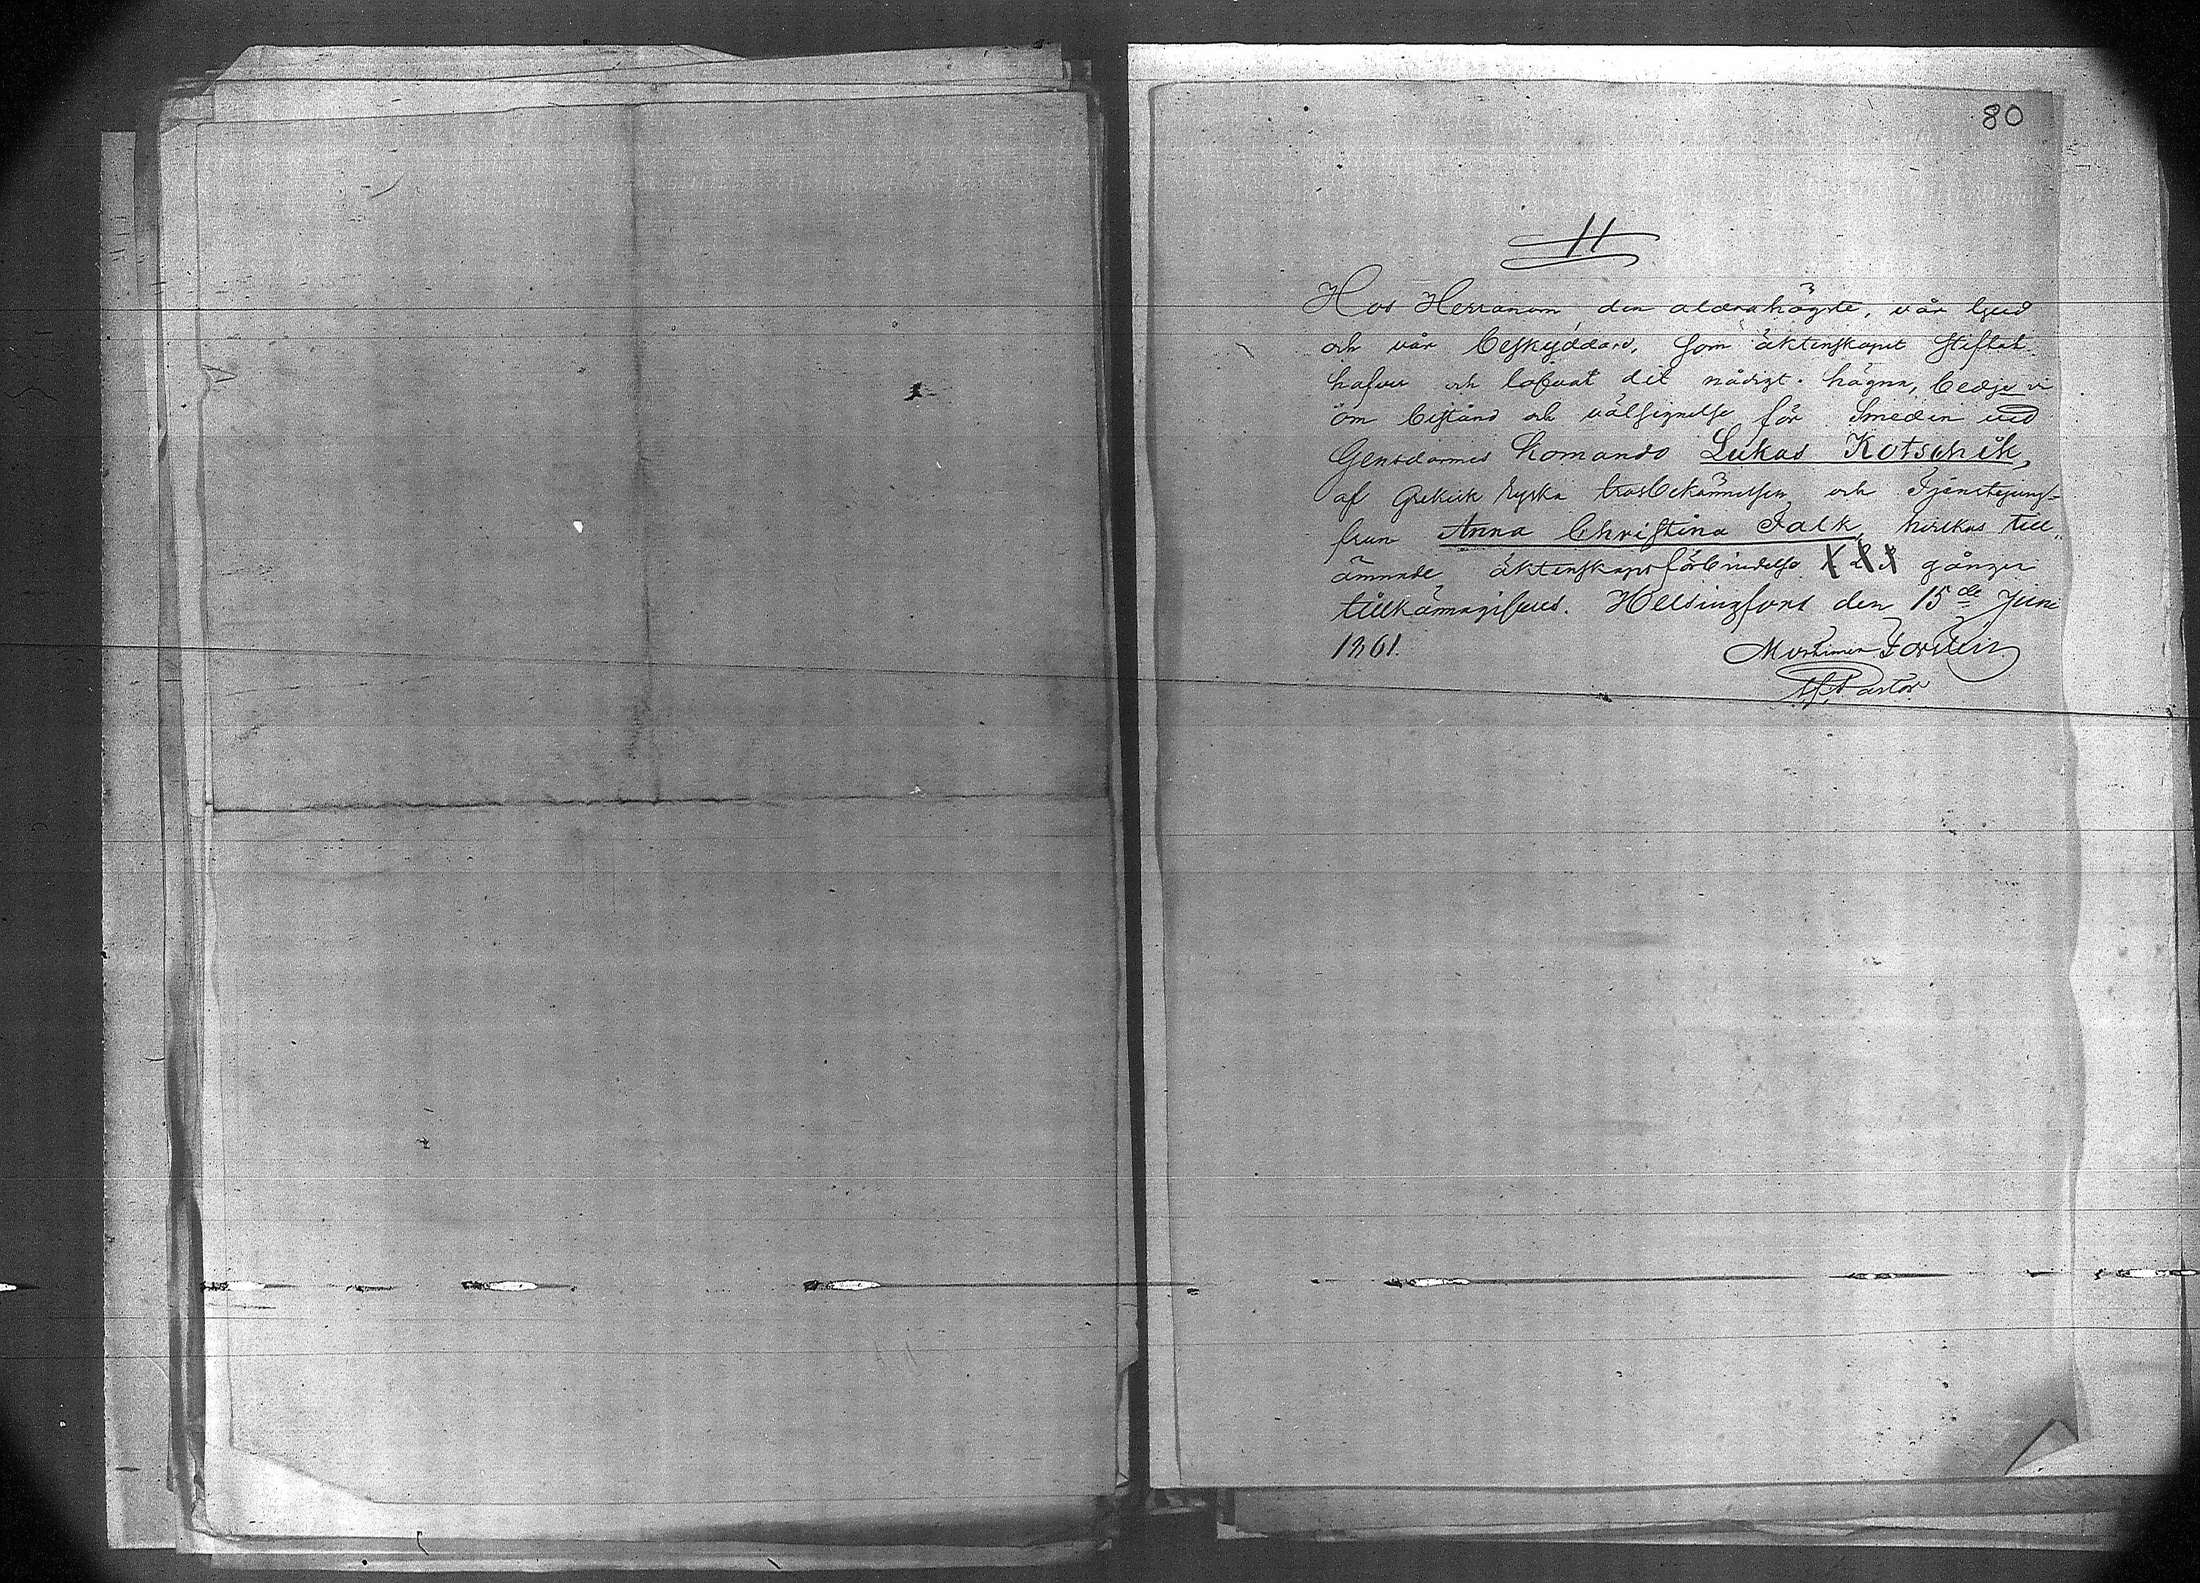 80
11
Hos Herranom, den aldrahögste, vår Gud
och vår beskyddare, som äktenskapet stiftat
hafver och lofvat det nådigt hägna, bedje vi
om bistånd och välsignelse för Smeden vid
Gensdarmes Komando Lukas Kotschik,
af Grekisk Ryska trosbekännelsen och Tjenstejung-
frun Anna Christina Falk, hvilkas till-
ämnade äktenskapsförbindelse X X X gånger
tillkännagifves. Helsingfors den 15de Juni
1861.
Mortimer
Pastor